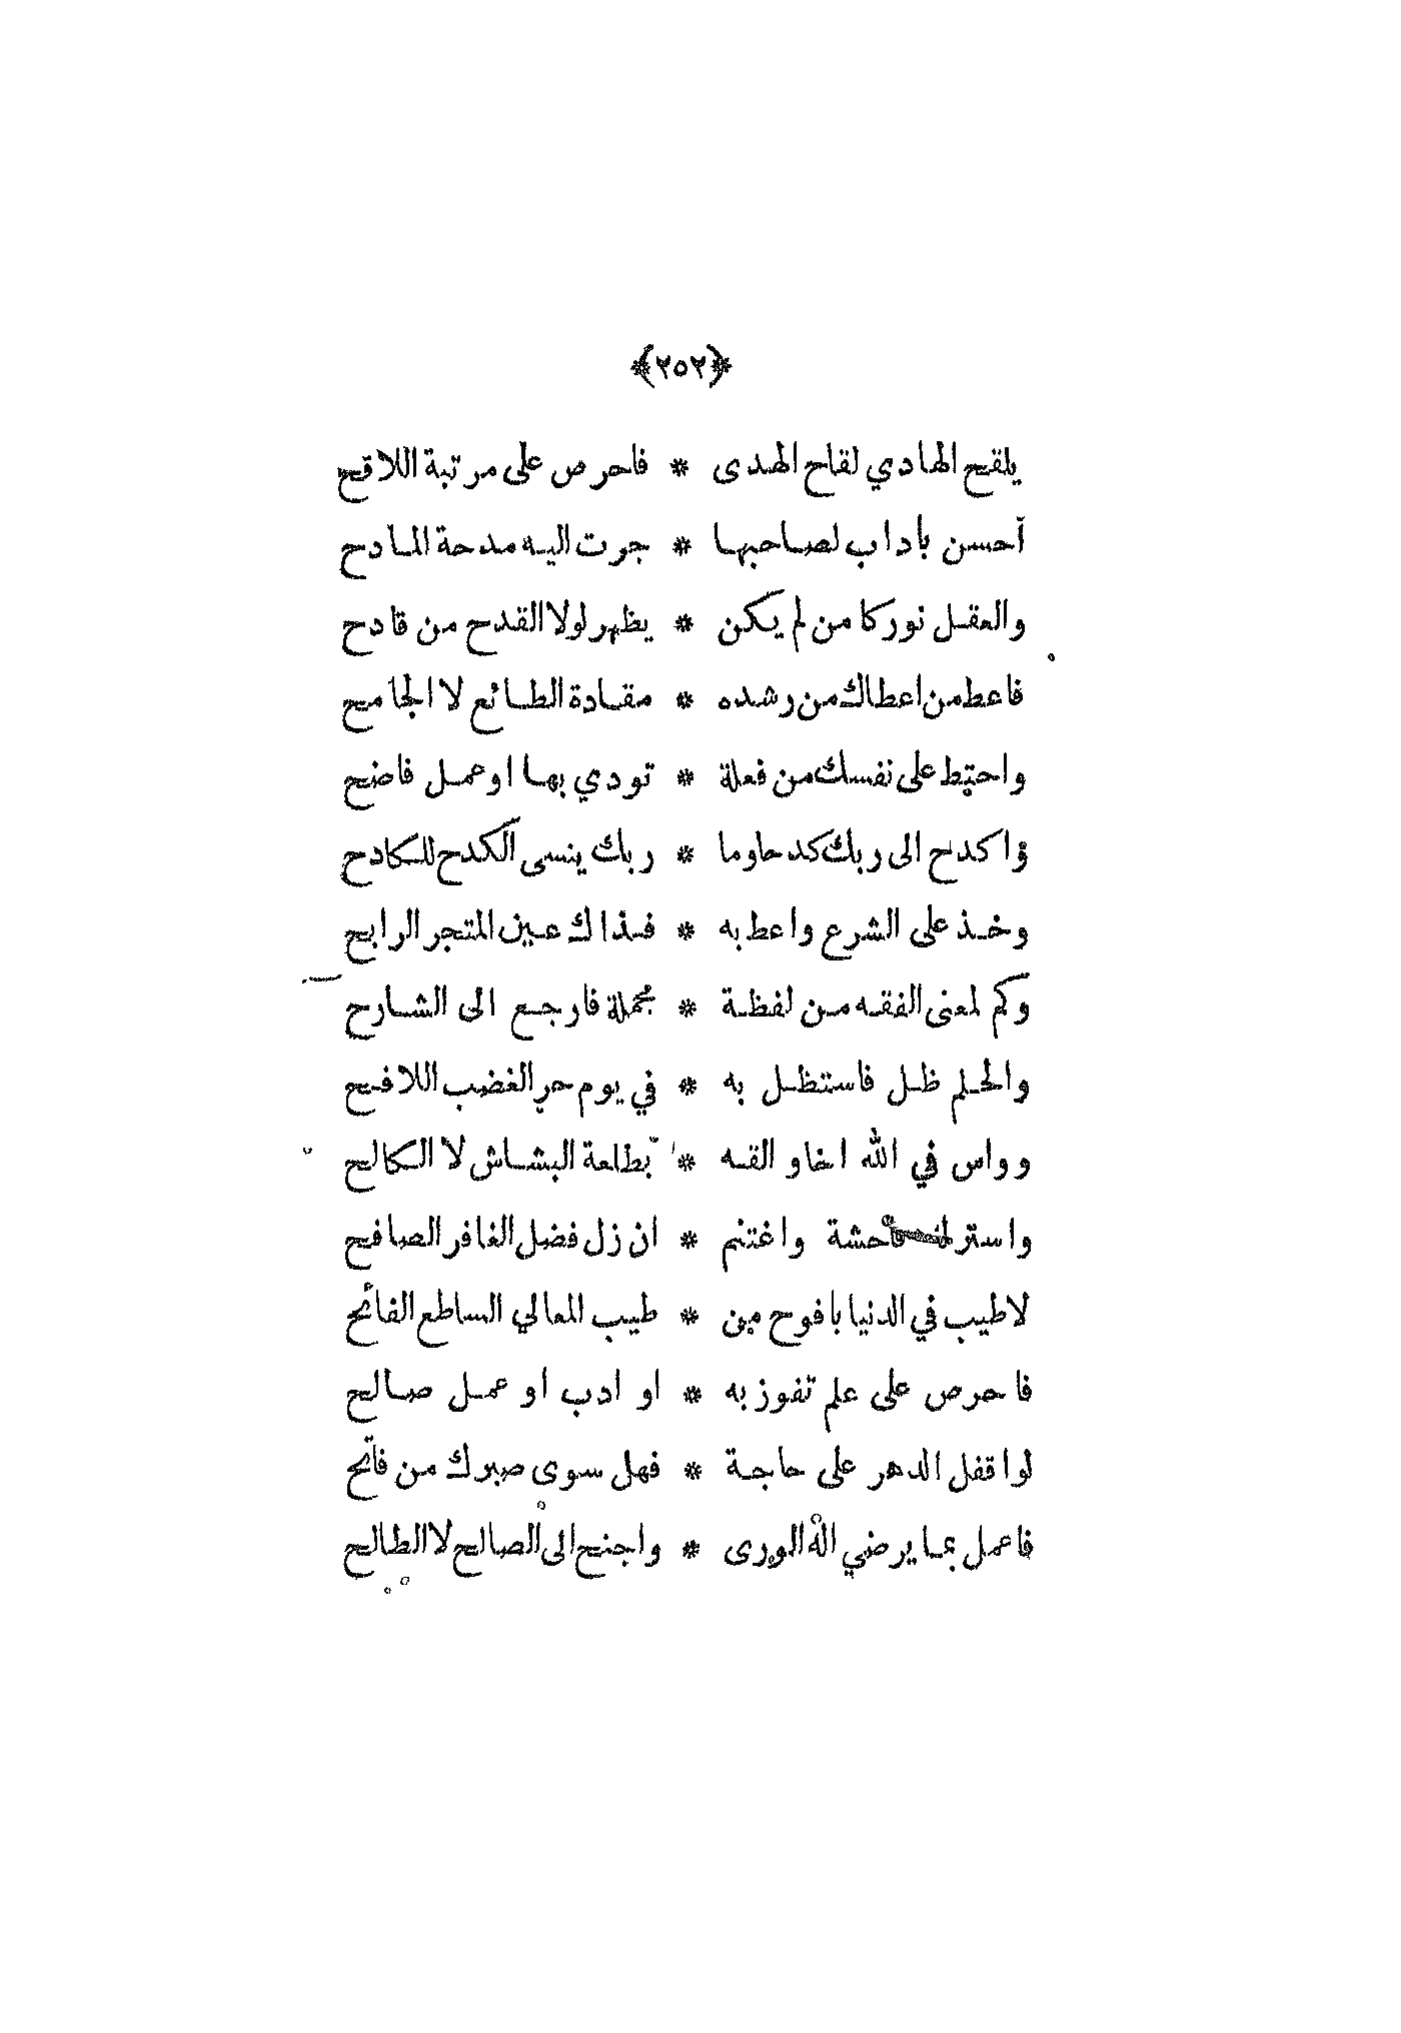 ﴿٢٥٢﴾
يلقح الهادي لقاح الهدى * فاحرص على مرتبة اللاقح
أحسن بآداب لصاحبها * جرت اليه مدحة المادح
والعقل نور كامن لم يكن * يظهر لولا القدح من قادح
فاعط من اعطاك من رشده * مقادة الطائع لا الجامح
واحتط على نفسك من فعلة * تودي بها او عمل فاضح
واكدح الى ربك كدحا وما * ربك ينسى الكدح للكادح
وخذ على الشرع واعط به * فذاك عين المتجر الرابح
وكم لمعنى الفقه من لفظة * مجملة فارجع الى الشارح
والحلم ظل فاستظل به * في يوم حر الغضب اللافح
وواس في الله اخا والقه * بطلعة البشاش لا الكالح
واستر فاحشة واغتنم * ان زل فضل الغافر الصافح
لا طيب في الدنيا بافوح من * طيب المعالي الساطع الفائح
فاحرص على علم تفوز به * او ادب او عمل صالح
لو اقفل الدهر على حاجة * فهل سوى صبرك من فاتح
فاعمل بما يرضي اله الورى * واجنح الى الصالح لا الطالح